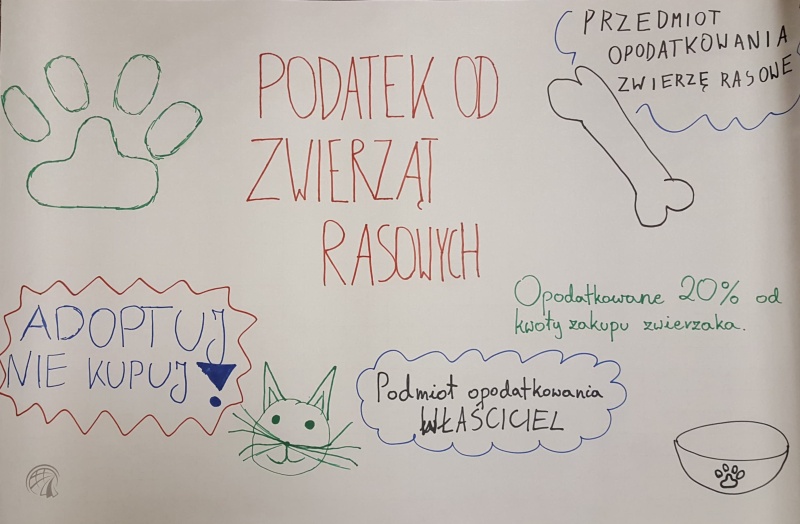 PODATEK OD
ZWIERZĄT
RASOWYCH
PRZEDMIOT
OPODATKOWANIA
ZWIERZĘ RASOWE
Opodatkowane 20% od
kwoty zakupu zwierzaka.
ADOPTUJ
NIE KUPUJ!
Podmiot opodatkowania
WŁAŚCICIEL